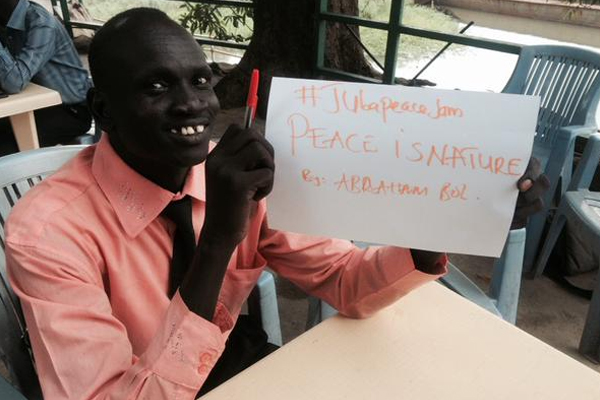 #JUbapeaceJam
PEACE iS NATURE
By: ABRAHAM BOL.